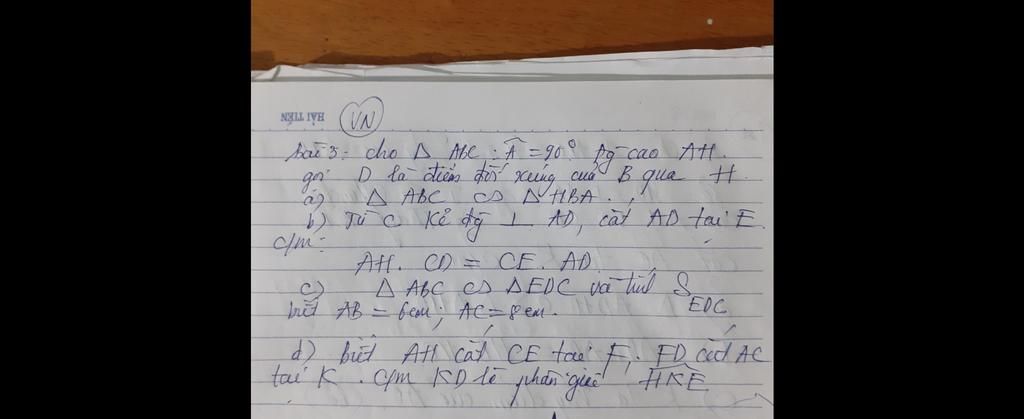 HẢI TIẾN
VN
bài 3: cho Δ ABC : Â = 90°. Đg cao AH.
gọi D là điểm đối xứng của B qua H
a) Δ ABC ∽ Δ HBA.
b) Từ C kẻ đg ⊥ AD, cắt AD tại E.
c/m:
AH. CD = CE. AD.
c) Δ ABC ∽ Δ EDC và tính S EDC
biết AB = 6cm; AC = 8cm.
d) biết AH cắt CE tại F. FD cắt AC
tại K. C/m KD là phân giác HKE